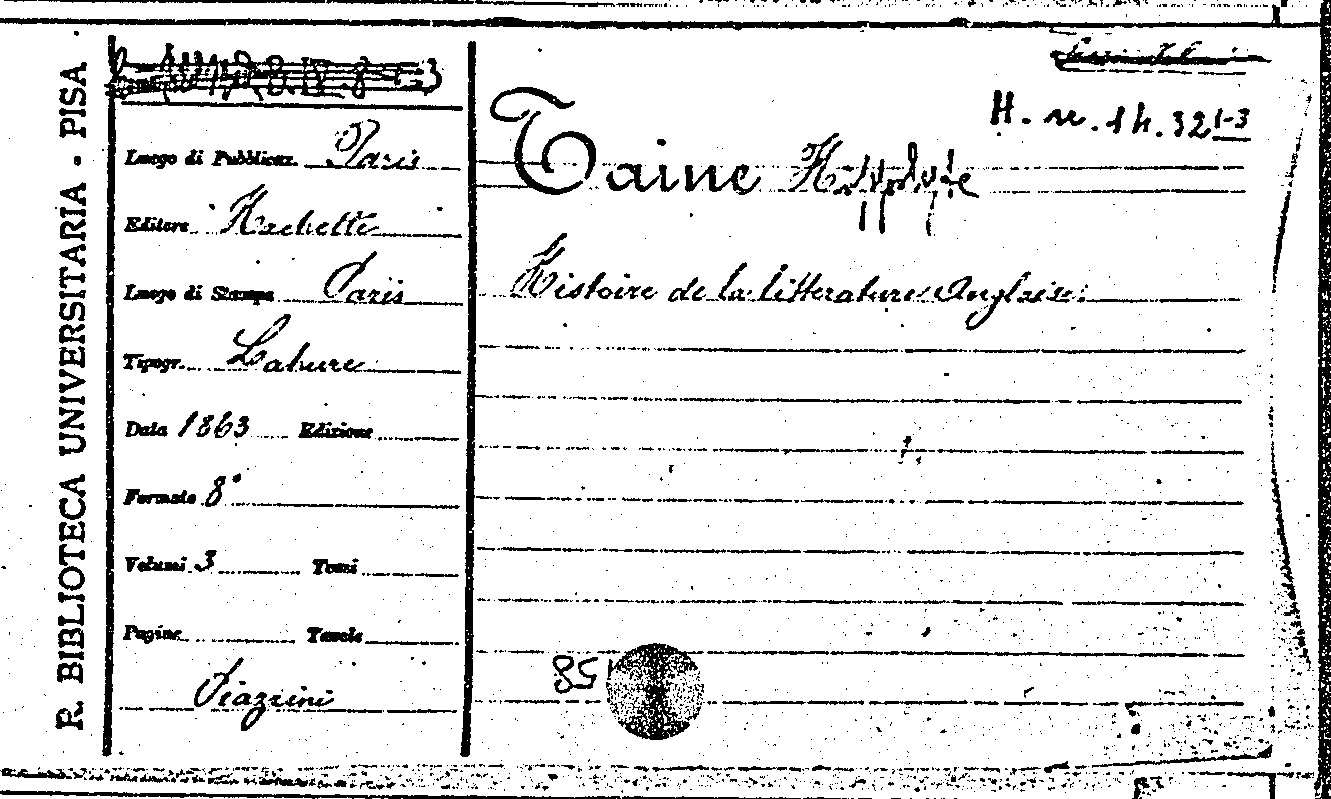 R. BIBLIOTECA UNIVERSITARIA - PISA
H. n. 14. 32 1-3
Luogo di Pubblicaz. Paris
Editore Hachette
Luogo di Stampa Paris
Tipogr. Lahure
Data 1863 Edizione
Formato 8°
Volumi 3 Tomi
Pagine Tavole
Piazzini
Taine Hippolyte
Histoire de la litterature Anglaise.
85